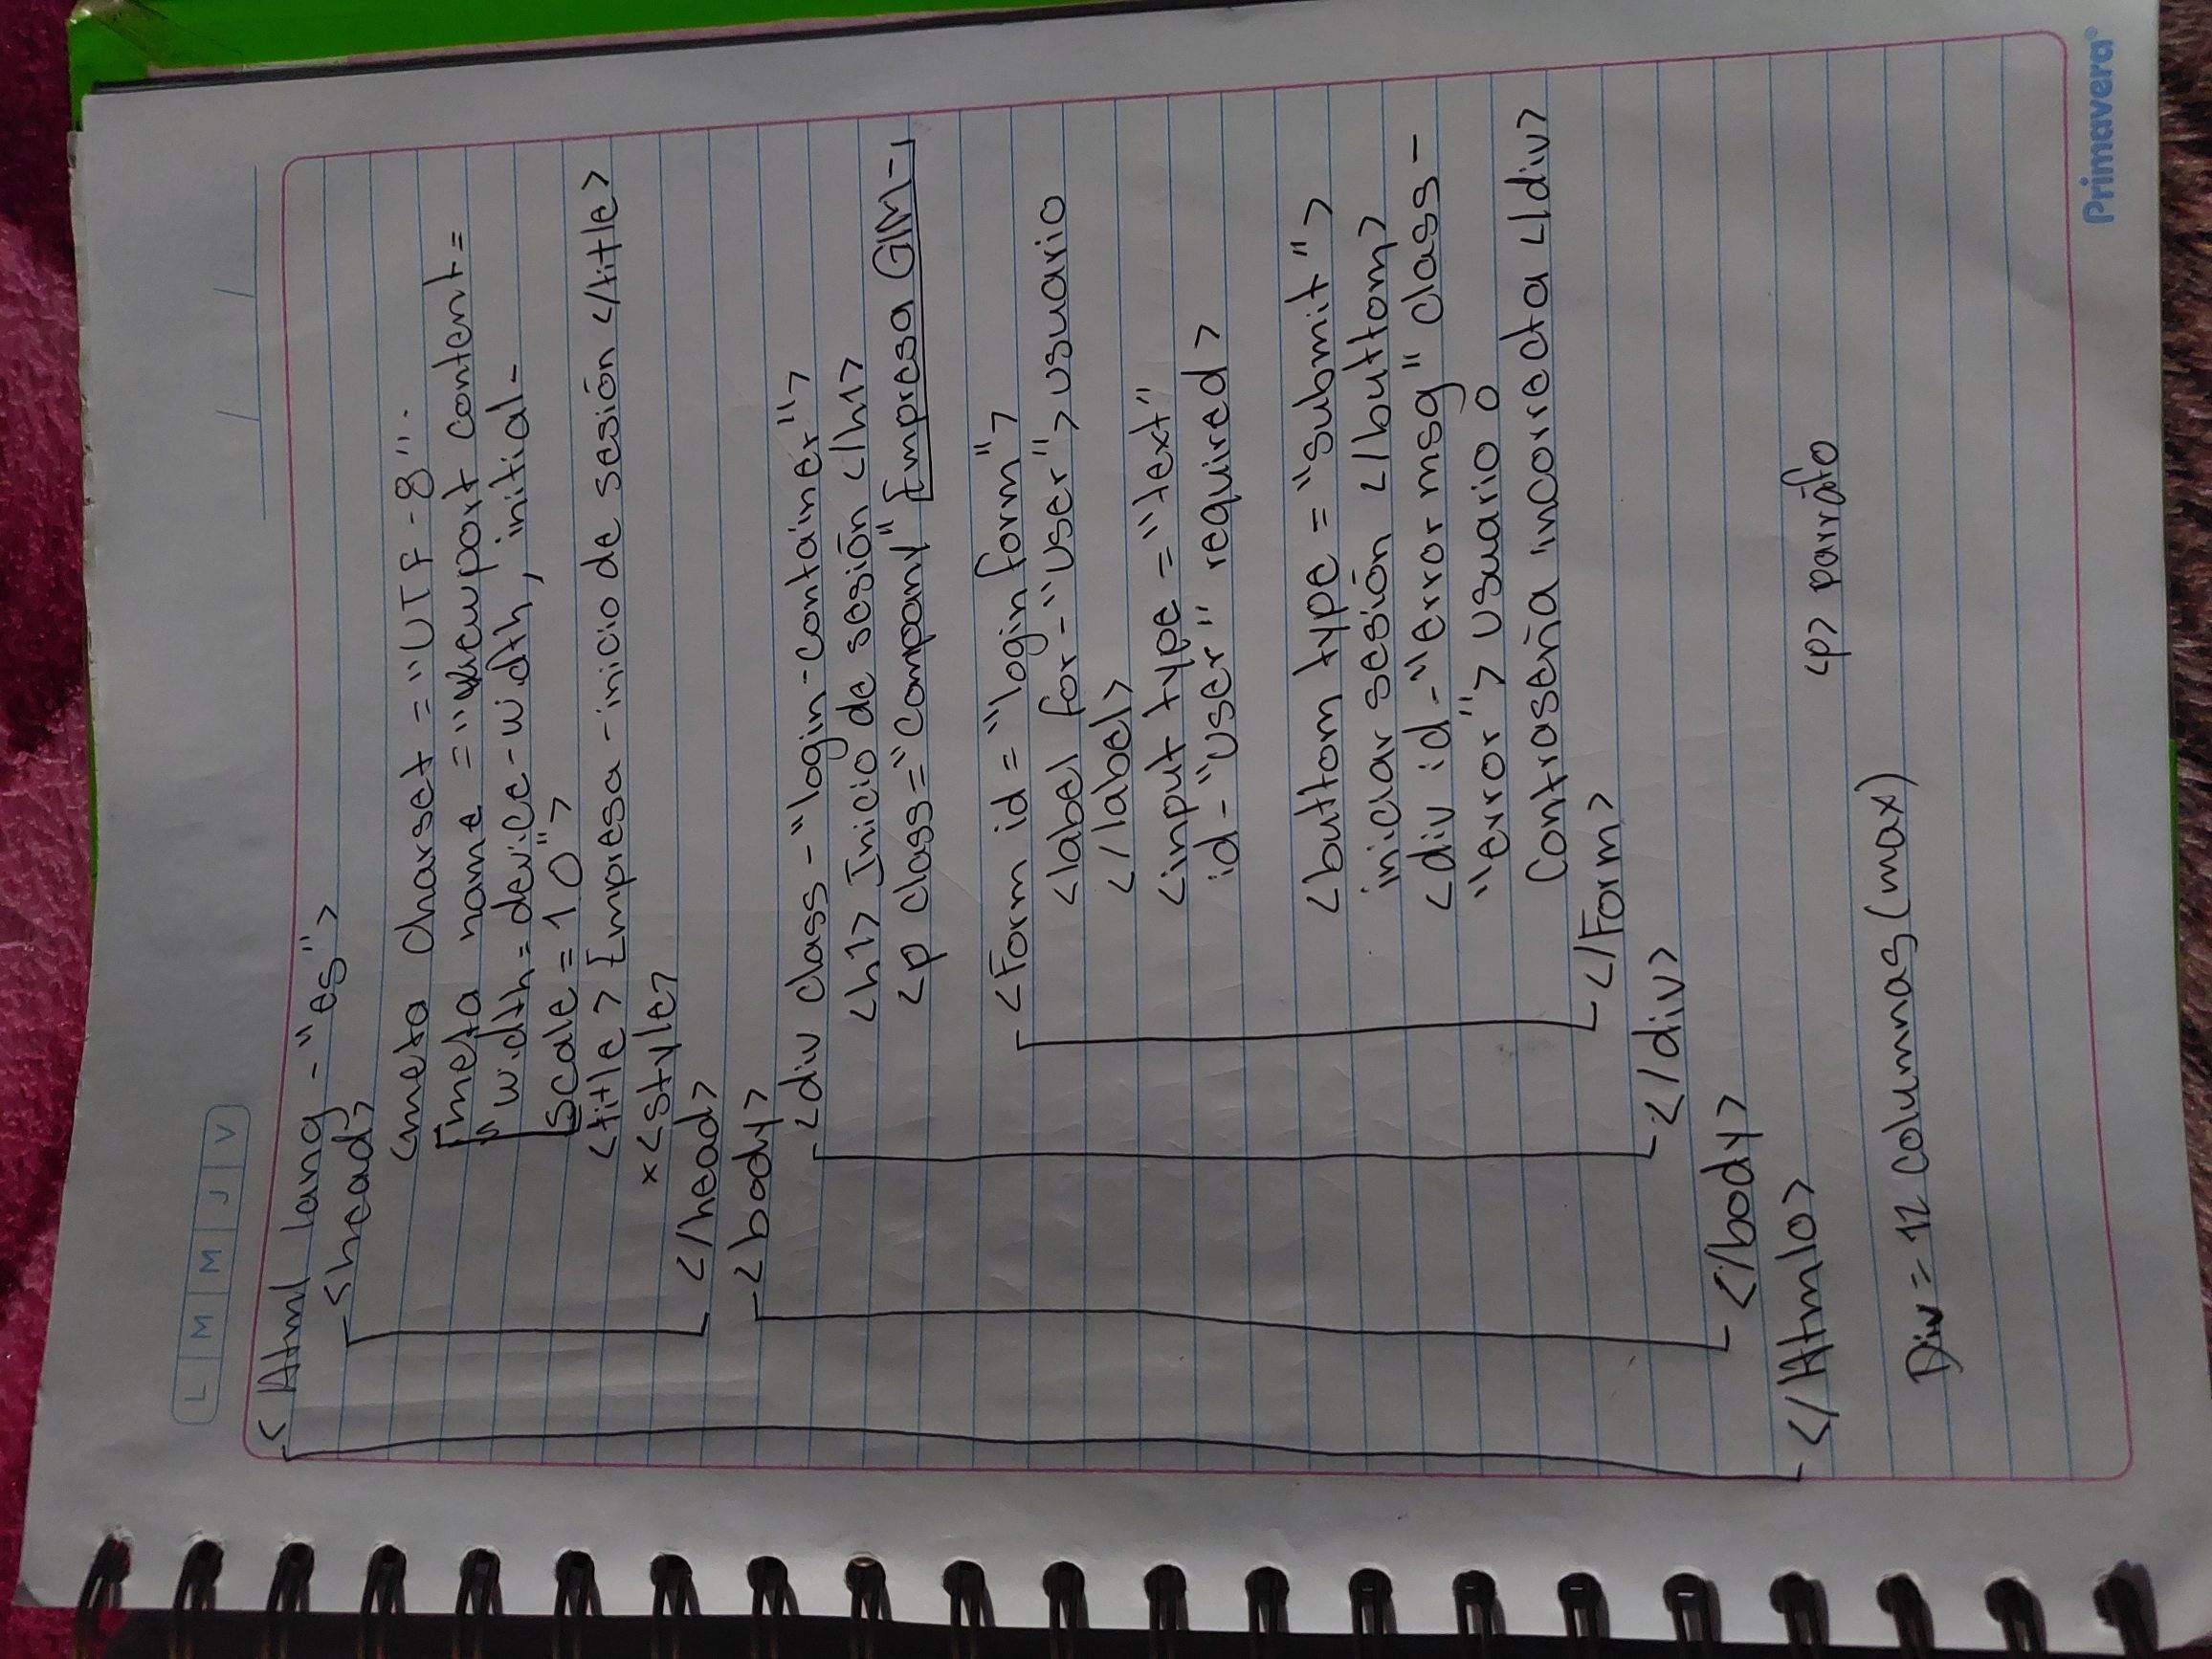 L M M J V
<Html lang - "es">
<head>
<meta charset = "UTF-8".
meta name = "viewport content =
"width = device-width, initial-
scale = 1.0">
<title> Empresa - inicio de sesión </title>
x <style>
</head>
<body>
<div class - "login-container">
<h1> Inicio de sesión </h1>
<p class = "company" Empresa GIM-1
<Form id = "login form">
<label for - "user"> usuario
</label>
<input type = "text"
id - "user" required>
<buttom type = "submit">
iniciar sesión </buttom>
<div id - "error msg" class -
"error"> usuario o
Contraseña incorrecta </div>
</Form>
</div>
</body>
</Htmlo>
<p> paráfo
Div = 12 columnas (max)
Primavera®